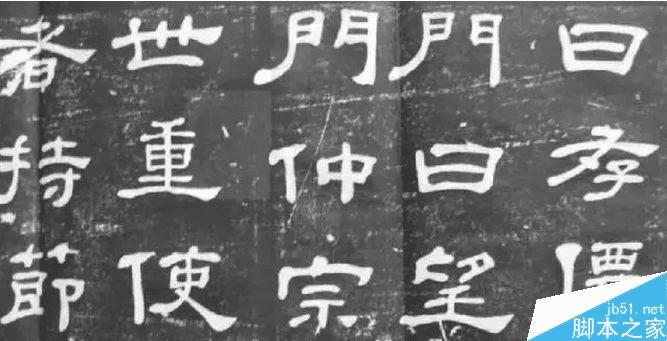 曰孝
門曰望
門仲宗
世重使
者持節
jb51.net
脚本之家